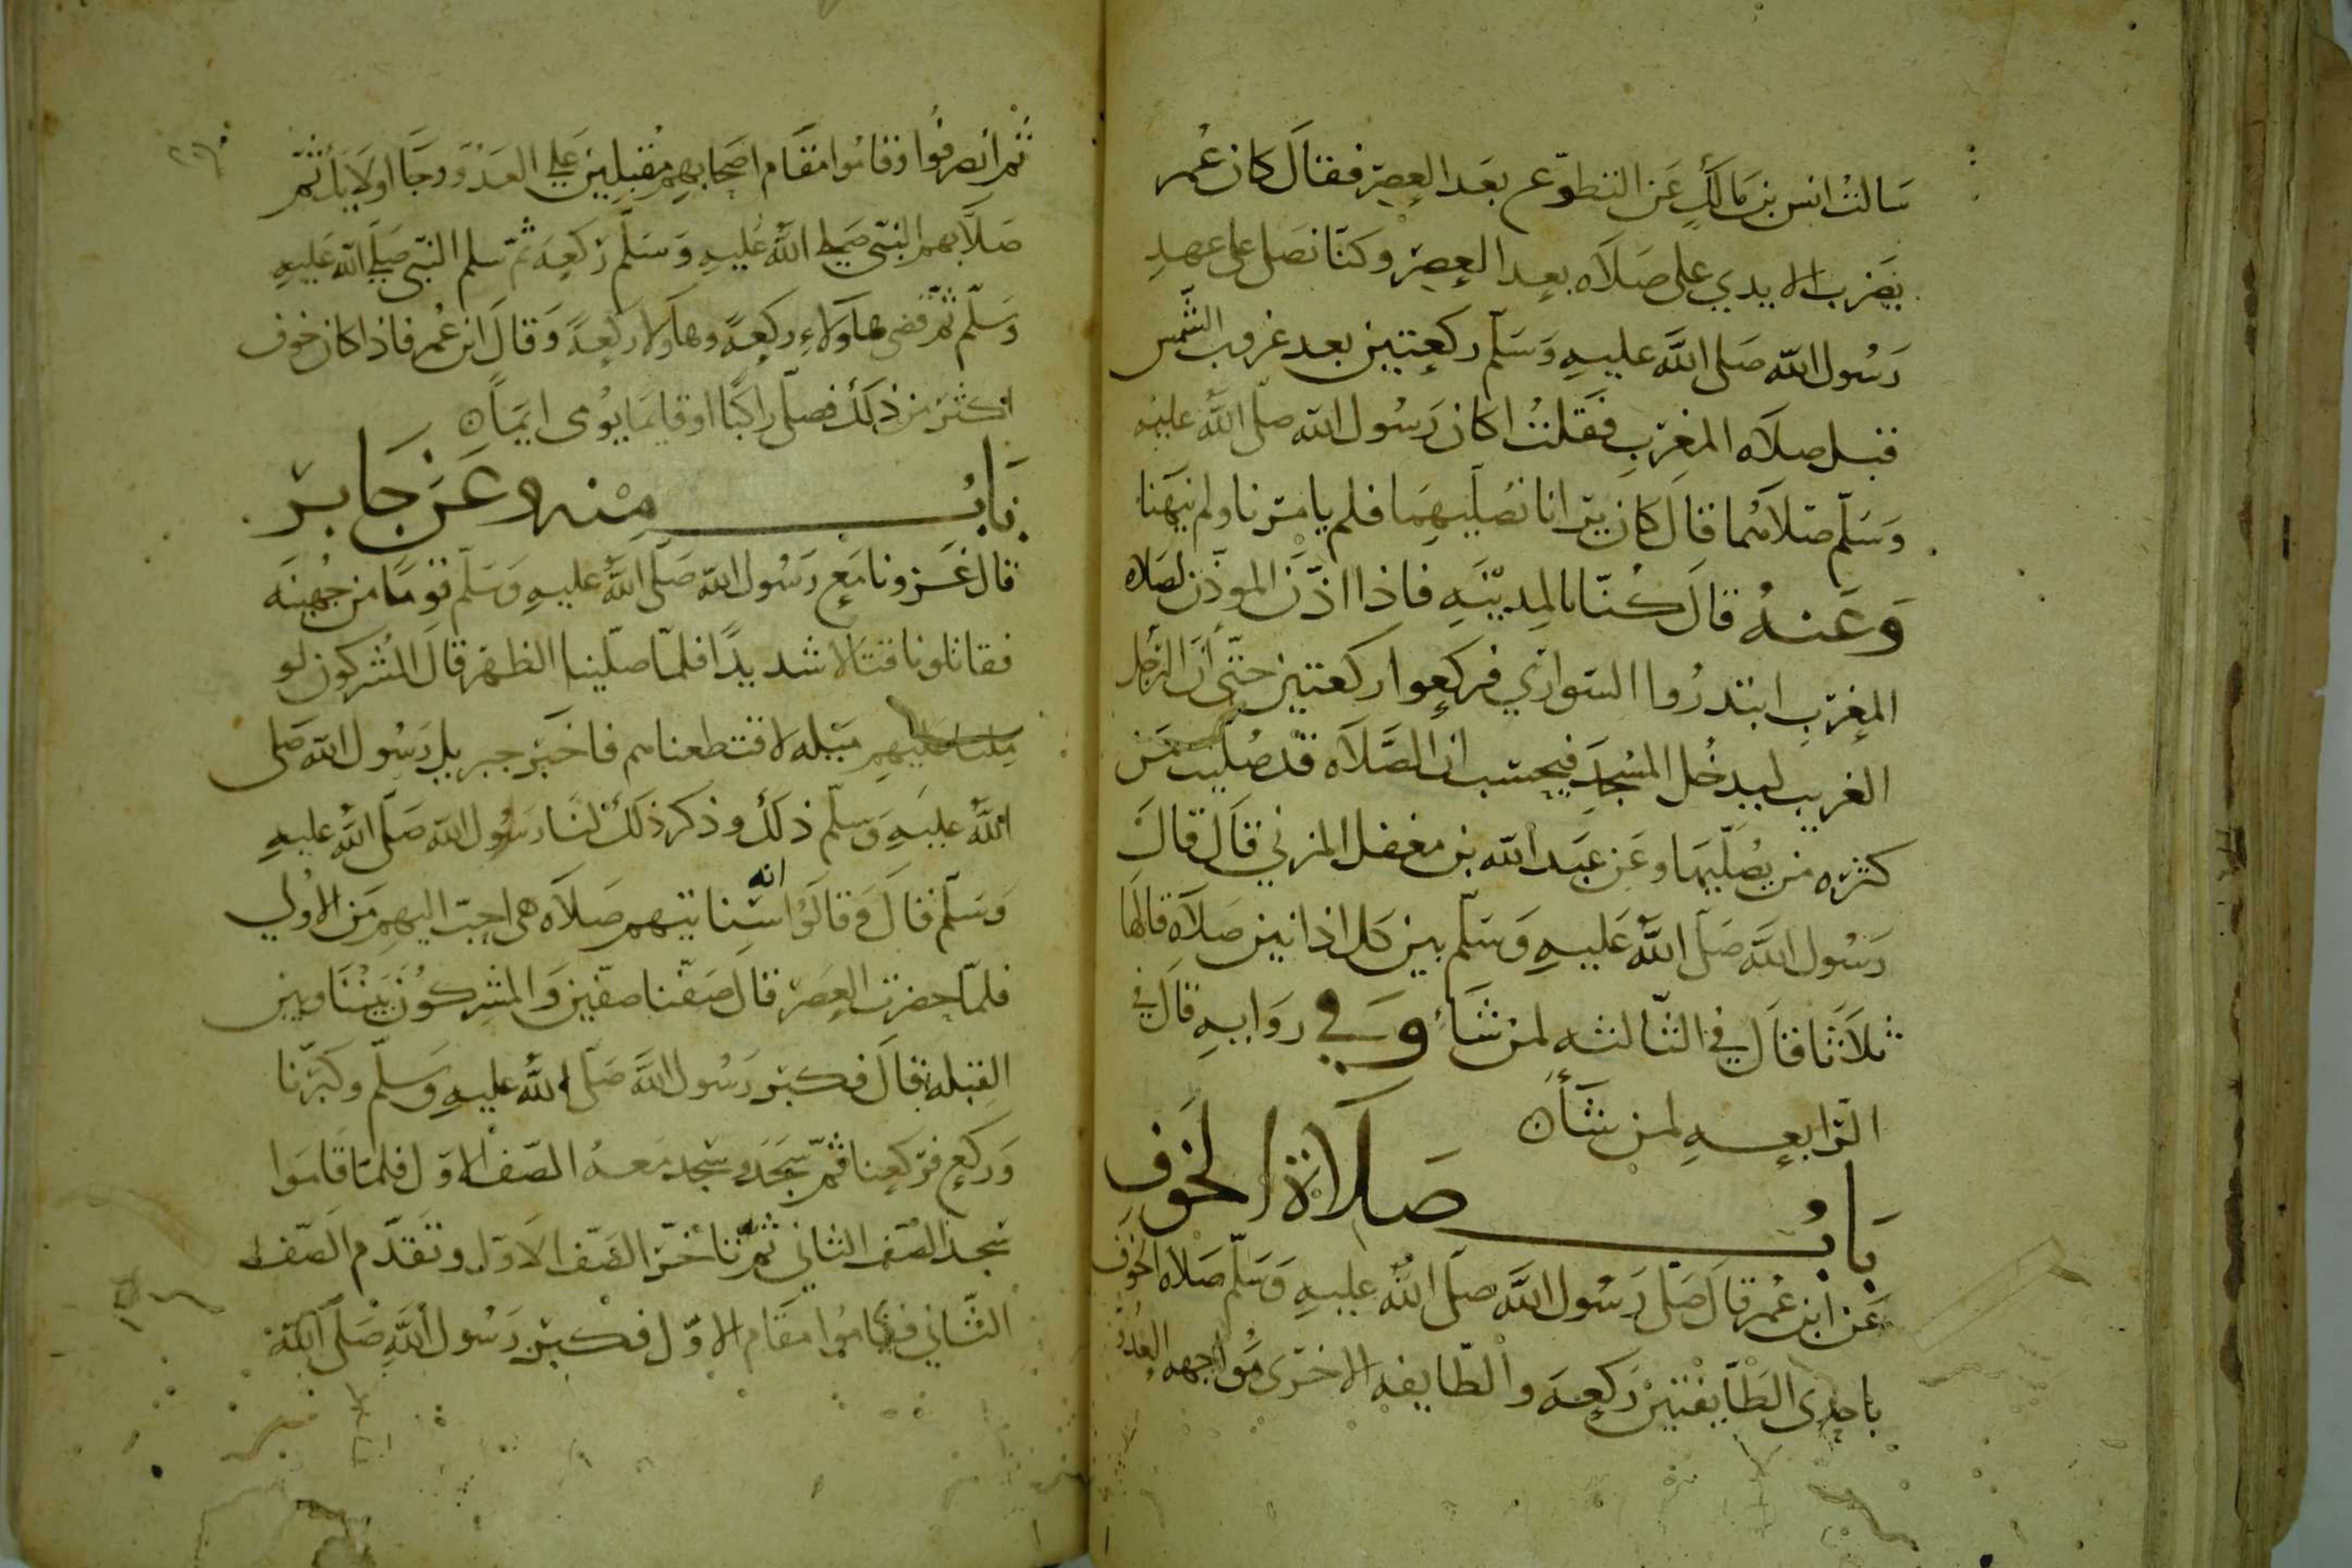 سَالتُ انس بن مَالكٍ عَن التطوّع بعَد العِصرِ فقالَ كان عُمر
يضَرب الايدي على صَلاَه بعد العِصرِ وكنّا نصَلى على عهدِ
رَسُول اللّه صَلى اللَّه عليهِ وَسَلّم ركعتين بعد غروب الشمس
قبل صلاَه المغِربِ فقَلتُ اكان رَسُول اللّه صلّى اللَّه عليه
وَسَلّم صَلاّهُما قالَ كان يرَانا نصُلّيهِمَا فلم يامرنا ولم ينهَنا
وَعَنهُ قالَ كُنّا بالمِديْنَهِ فَاِذا اذّنَ الموذّن لصَلاه
المغِربِ ابتدرُوا السَواري فركعوا ركعتين حتّى انّ الرّجل
الغريب ليدخُل المسْجدَ فيحسَب ان الصَّلاَه قدْ صُلّيَت مَن
كثره من يصُلّيهمَا وعَن عبَد اللّه بن مغفل المزني قالَ قالَ
رَسُول اللَّه صَلّى اللَّهُ عَليهِ وَسَلّم بين كل اذانين صَلاَه قالهَا
ثلاَثًا قالَ في الثالثه لمن شَاءَ وَفي روَايهِ قالَ في
الرّابعهِ لمن شَاَءَ ن
بَابُ صَلاَة الخَوفِ
عَن ابن عُمر قالَ صَلّى رَسُول اللَّه صَلّى اللَّهُ عليهِ وَسَلّم صَلاه الخوَف
باحِدى الطَّايفتيَن رَكعهَ والطّايفه الاخرَى مُوَاجهه العدُوّ
ثم انصرفُوا وقامُوا مقَام اصَحابهِم مقُبلِين عَلى العَدُوّ وجَا اولاَيك ثم
صَلاّ بهم النبّي صَلى اللَّهُ عَليهِ وَسَلّم رَكعهَ ثم سَلم النبّي صَلىّ اللّه عَليهِ
وَسَلّم ثمّ قضَى هاَولاَءِ ركعِهً وهاَولا ركعِهً وَقالَ ابن عُمر فاذا كان خوف
اكثرَ من ذلكَ فصلّى راكبًا او قايمًا يوُمى ايَمآَ ن
بَابُ مِنه وَعَن جَابر
قالَ غَزونا مَع رَسُول اللّه صَلّى اللَّهُ عليهِ وَسَلّم قومًا من جُهينَه
فقاتلونا قتالاً شديدًا فلمّا صلّينا الظهرَ قالَ المُشركون لو
مِلنَا عليهِم ميَله لاقتطعناهم فاخبَر جبريل رَسُول اللّه صَلى
اللَّهُ عليهِ وَسلّم ذلكَ وذكر ذلَكَ لنَا رَسُول اللّه صَلّى اللَّهُ عليهِ
وَسَلّم قالَ وَقالوُا انه سَتاتيهم صَلاَه هي احبّ اليهم مَن الاولي
فلمّا حضرت العصَر قالَ صَفّنا صفّين وَالمشركوُن بَينَنَا وبين
القبلهِ قالَ فكبّر رَسُول اللَّه صَلّى اللَّهُ عليهِ وَسلّم وكبرّنا
وَركعِ فركعنا ثمّ سَجَد وسَجد مَعهُ الصّف الاوّل فلمّا قَامَوا
سَجد الصَّف الثاني ثمّ تَأخّر الصّف الاوّل وتقدّم الصّف
الثّاني فقامُوا مقَام الاوّل فكبّر رَسُول اللَّهِ صَلّى اللَّهُ